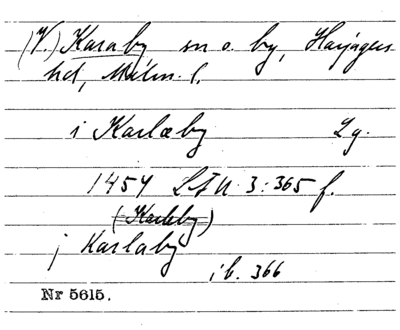 (V.) Karaby sn o. by, Harjagers
hd, Malm. l.
i Karlæby Lg.
1454 LTU 3:365 f.
(Karleby)
j Karlaby
ib. 366
Nr 5615.